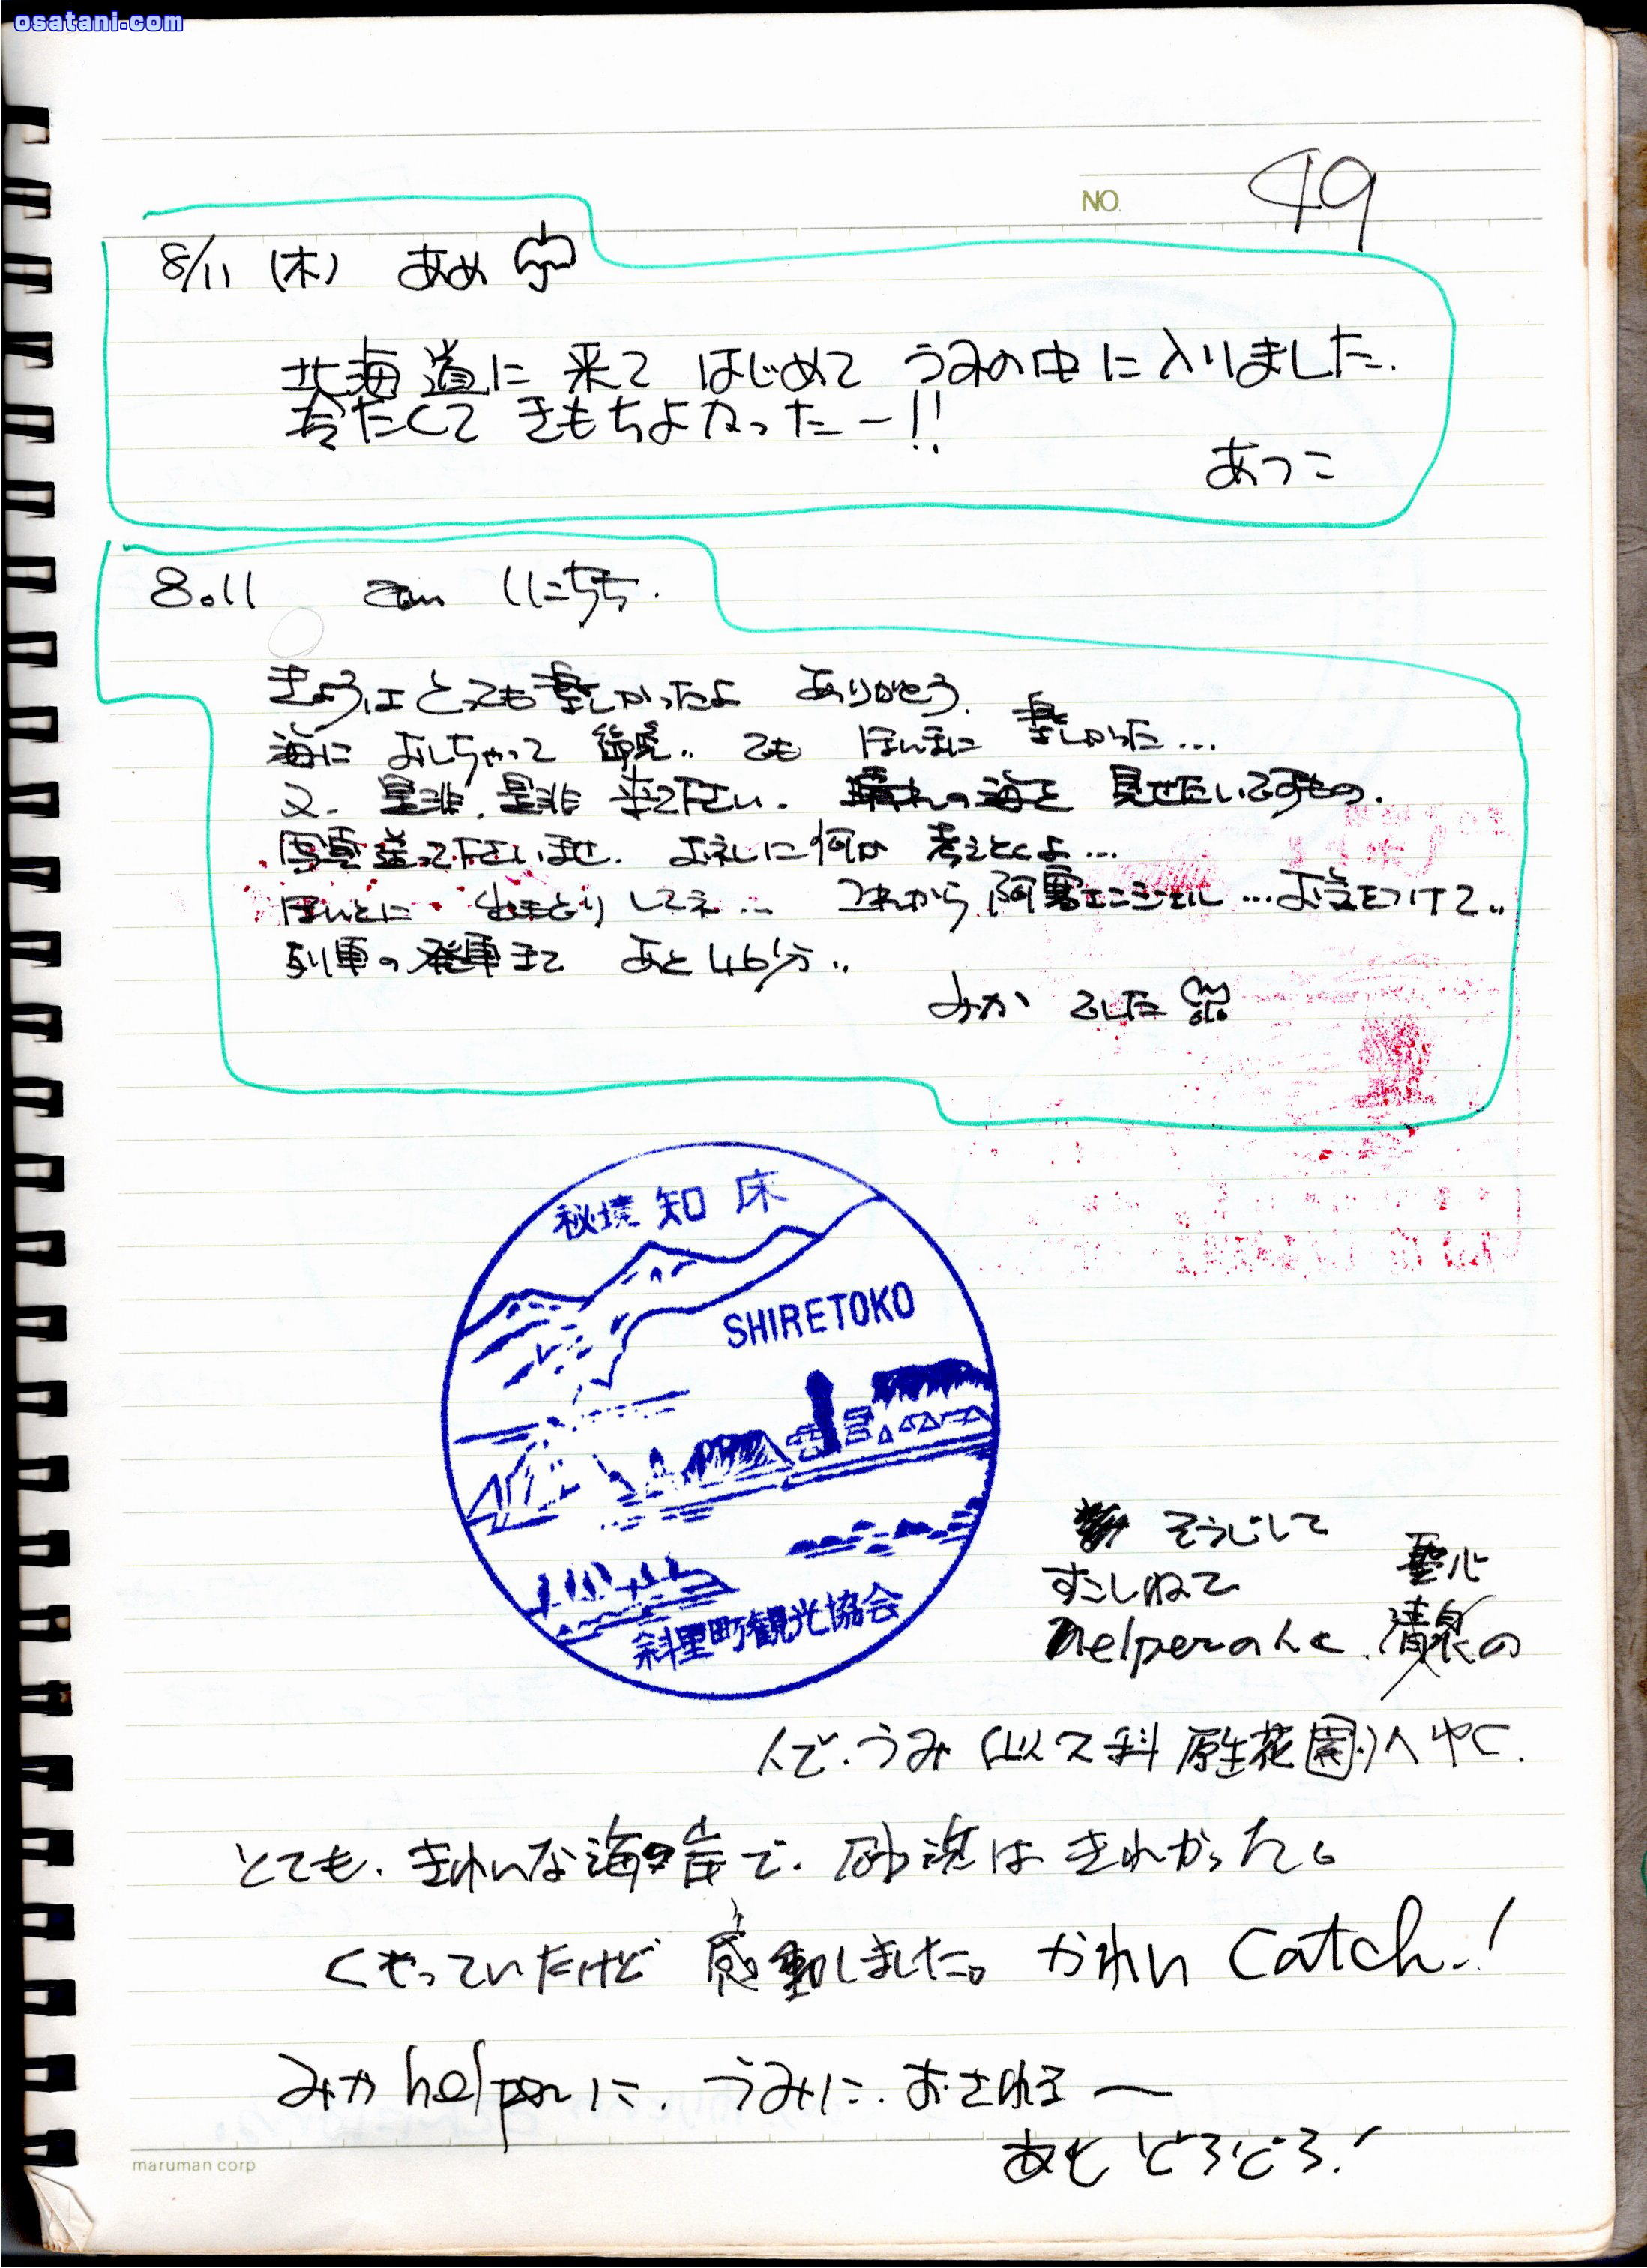 osatani.com
NO. 49
8/11 (木) あめ
北海道に 来て はじめて うみの中に入りました.
冷たくて きもちよかったー!!
あつこ
8.11
きょうは とっても楽しかったよ ありがとう.
海に おしちゃって でも ほんまに 楽しかった…
又. 是非. 是非 来て下さい. 晴れの海を 見せたいですもの.
写真送って下さいませ. お礼に何か 考えとくよ…
ほんとに してネ… これから 阿寒エンジェル …お気をつけて..
列車の発車まで あと46分..
みか でした
秘境 知床
SHIRETOKO
斜里町観光協会
そうじして
すこしねて 聖心
helperの人と 清泉の
人で.うみ(以久科原生花園)へゆく.
とても.きれいな海岸で.砂浜はきれかった。
くもっていたけど 感動しました。かわいい catch!
みかhelperに.うみに.おされる〜
あとどろどろ!
maruman corp